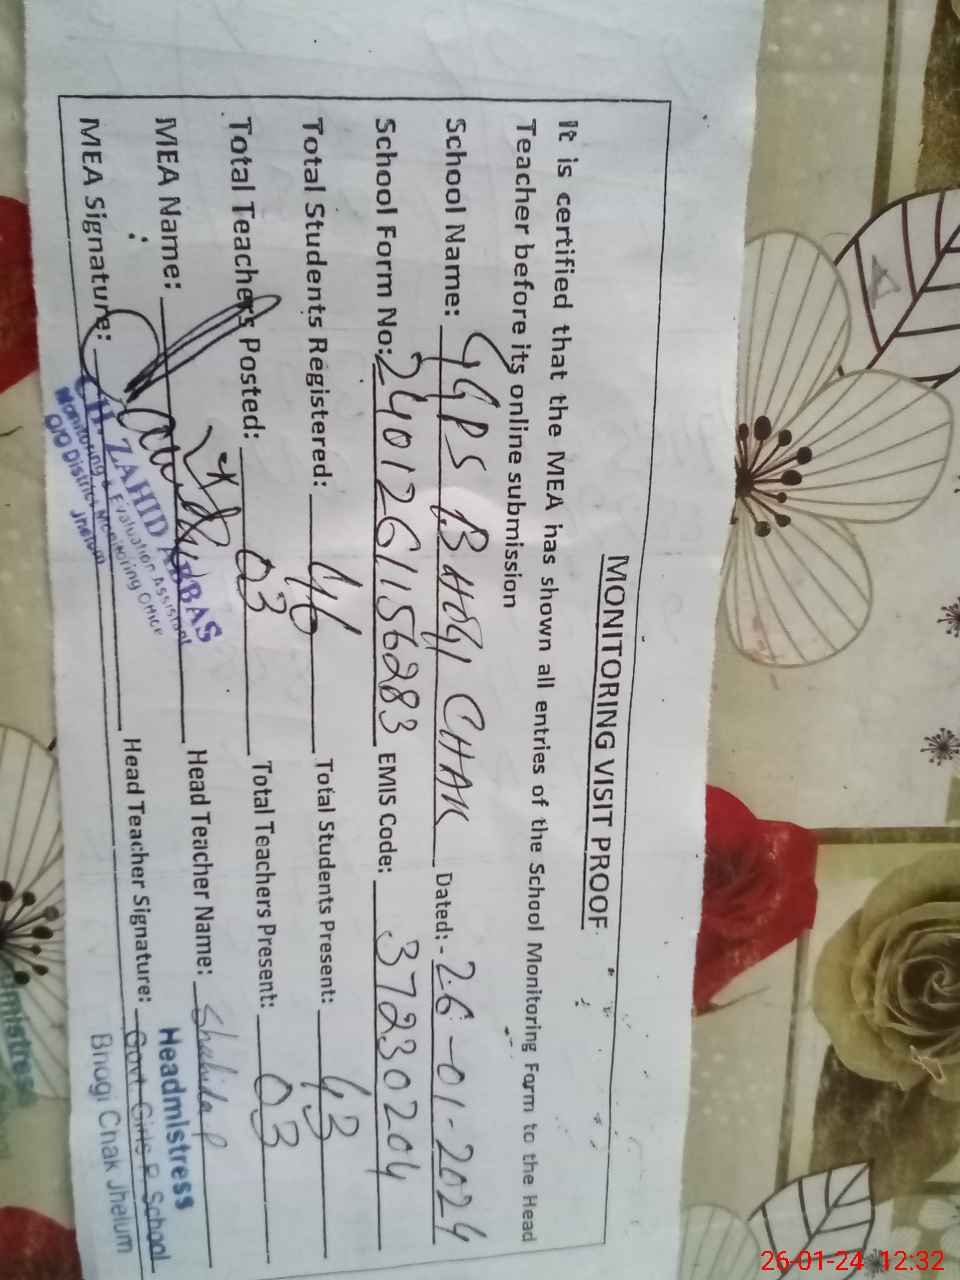 MONITORING VISIT PROOF
It is certified that the MEA has shown all entries of the School Monitoring Form to the Head
Teacher before its online submission
School Name: GGPS BHOGI CHAK Dated:- 26-01-2024
School Form No: 2401261156283 EMIS Code: 37230204
Total Students Registered: 46 Total Students Present: 43
Total Teachers Posted: 03 Total Teachers Present: 03
MEA Name: Head Teacher Name: Shahida P
MEA Signature: Head Teacher Signature:
CH. ZAHID ABBAS
Monitoring & Evaluation Assistant
O/O District Monitoring Office
Jhelum
Headmistress
Govt. Girls P. School
Bhogi Chak Jhelum
26-01-24 12:32